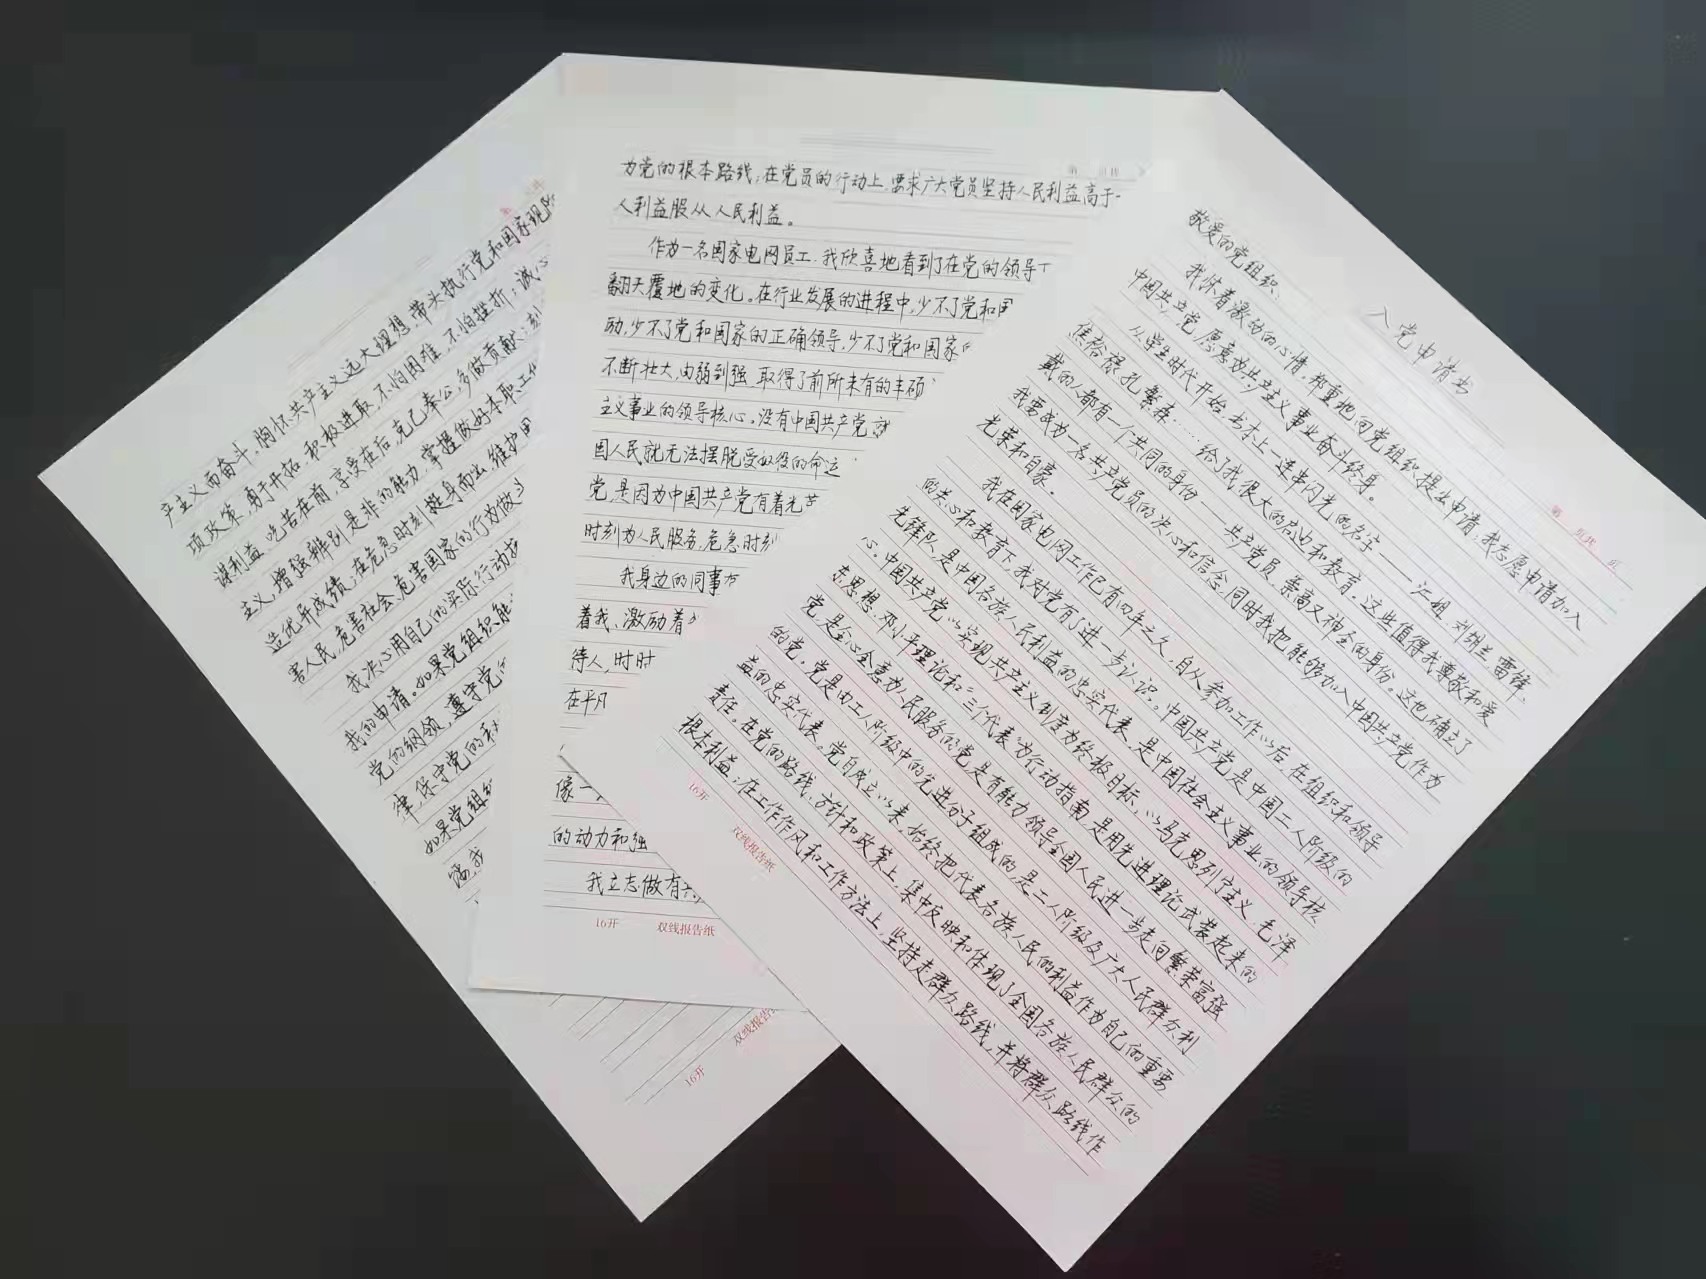 入党申请书
第 页共 页
敬爱的党组织:
我怀着激动的心情,郑重地向党组织提出申请:我志愿申请加入
中国共产党,愿意为共产主义事业奋斗终身。
从学生时代开始,书本上一连串闪光的名字——江姐、刘胡兰、雷锋、
焦裕禄、孔繁森……给了我很大的启迪和教育。这些值得我尊敬和爱
戴的人都有一个共同的身份——共产党员,崇高又神圣的身份。这也确立了
我要成为一名共产党员的决心和信念,同时我把能够加入中国共产党作为
光荣和自豪。
我在国家电网工作已有四年之久,自从参加工作以后,在组织和领导
的关心和教育下,我对党有了进一步认识。中国共产党是中国工人阶级的
先锋队,是中国各族人民利益的忠实代表,是中国社会主义事业的领导核
心。中国共产党以实现共产主义制度为终极目标,以马克思列宁主义、毛泽
东思想、邓小平理论和“三个代表”为行动指南,是用先进理论武装起来的
党,是全心全意为人民服务的党,是有能力领导全国人民进一步走向繁荣富强
的党。党是由工人阶级中的先进分子组成的,是工人阶级及广大人民群众利
益的忠实代表。党自成立以来,始终把代表各族人民的利益作为自己的重要
责任。在党的路线、方针和政策上,集中反映和体现了全国各族人民群众的
根本利益;在工作作风和工作方法上,坚持走群众路线,并将群众路线作
16开 双线报告纸
第 页共
为党的根本路线;在党员的行动上,要求广大党员坚持人民利益高于
人利益服从人民利益。
作为一名国家电网员工,我欣喜地看到了在党的领导下
翻天覆地的变化。在行业发展的进程中,少不了党和国
励,少不了党和国家的正确领导,少不了党和国家
不断壮大,由弱到强,取得了前所未有的丰硕
主义事业的领导核心。没有中国共产党,就
国人民就无法摆脱受奴役的命运
党,是因为中国共产党有着光荣
时刻为人民服务,危急时刻
我身边的同事
着我、激励着
待人,时时
在平凡
像一
的动力和强
我立志做有
16开 双线报告纸
产主义而奋斗。胸怀共产主义远大理想,带头执行党和国家现阶
项政策,勇于开拓,积极进取,不怕困难,不怕挫折;诚心
谋利益,吃苦在前,享受在后,克己奉公,多做贡献;刻
主义,增强辨别是非的能力,掌握做好本职工作
造优异成绩;在危急时刻挺身而出,维护国
害人民,危害社会,危害国家的行为做
我决心用自己的实际行动接
我的申请。如果党组织能
党的纲领,遵守党
律,保守党的秘
如果党组织
16开 双线报告